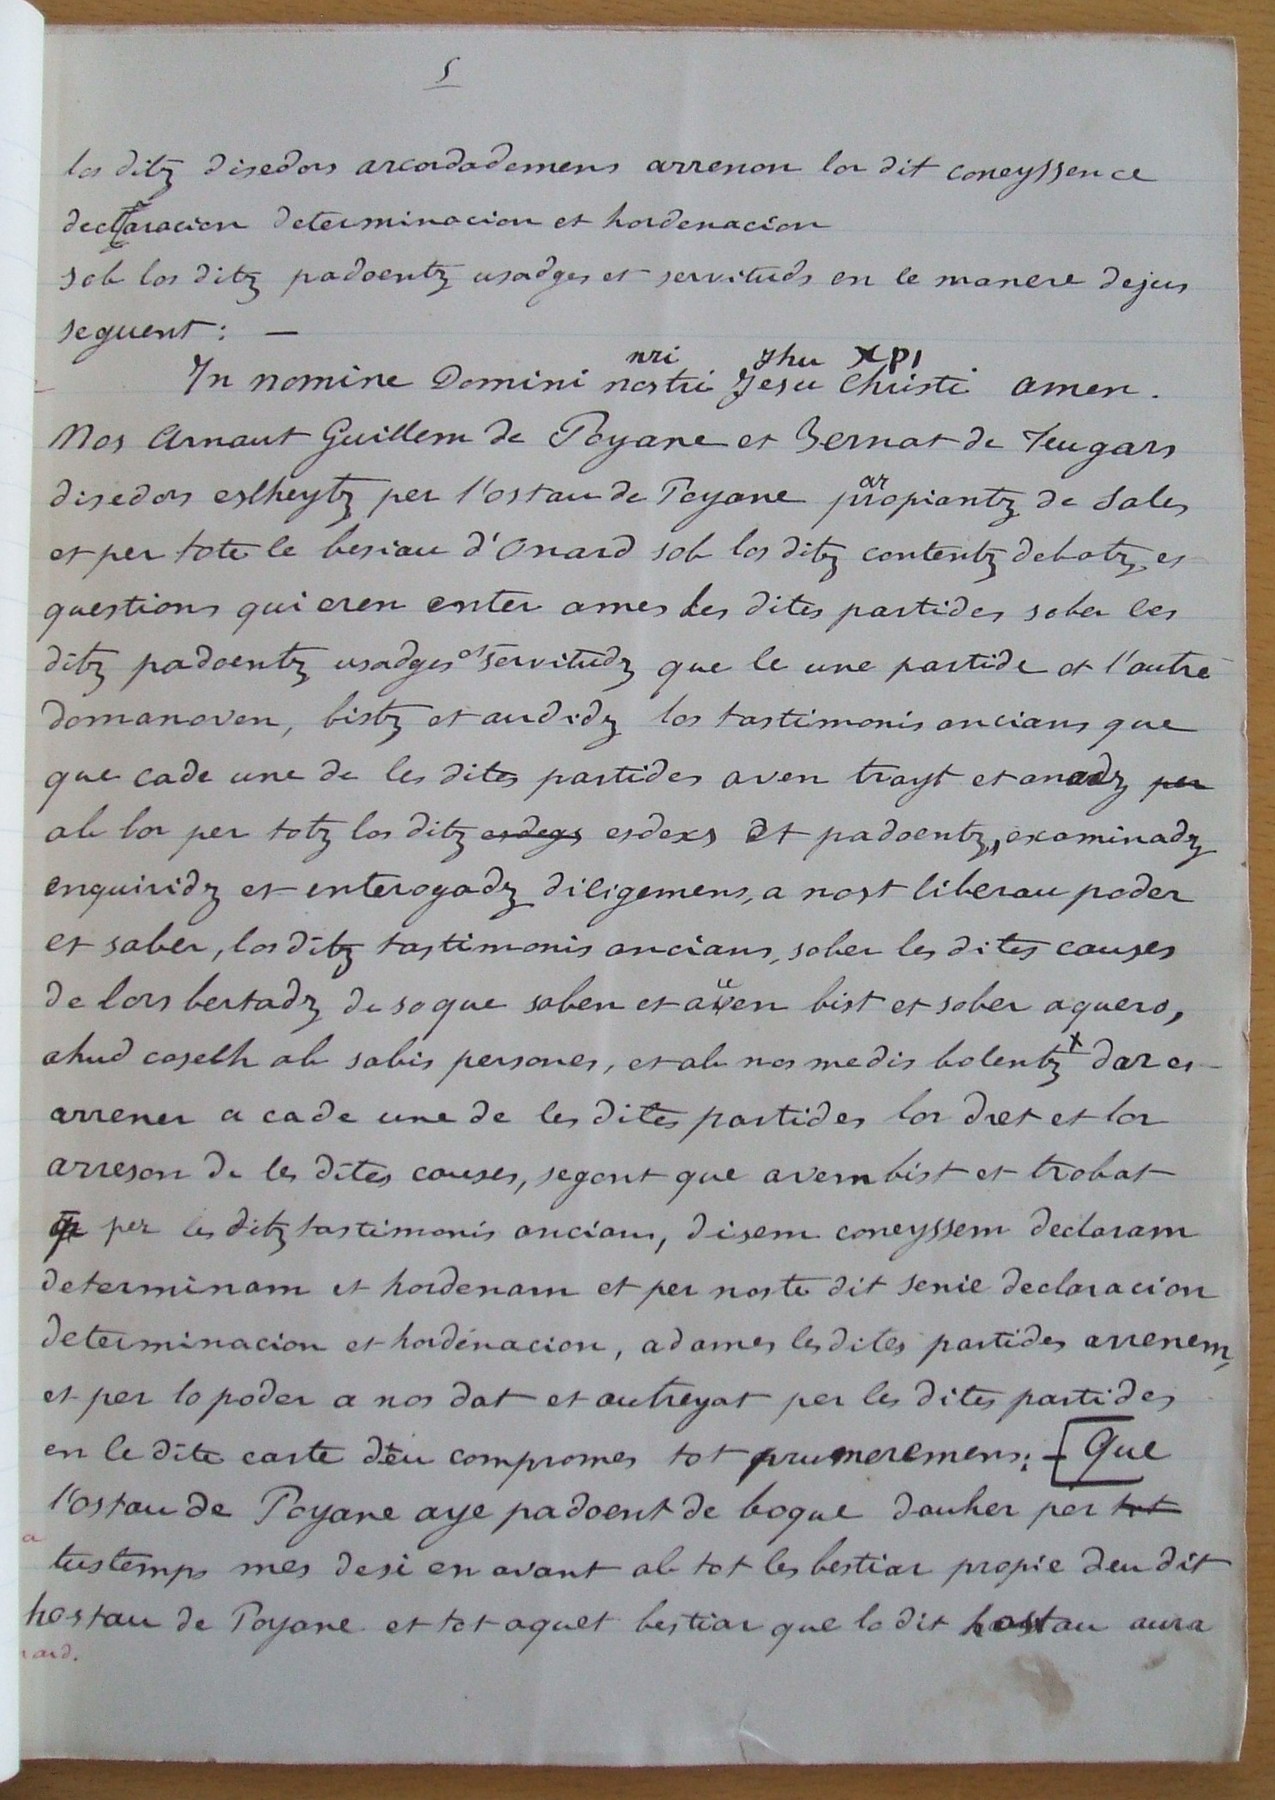 5
los ditz disedors arcordademens arrenon lor dit coneyssence
declaracion determinacion et hordenacion
sob los ditz padoentz usadges et servituds en le manere dejus
seguent : —
nri Jhu xpi
In nomine Domini nostri Jesu Christi amen.
Nos Arnaut Guillem de Poyane et Bernat de
disedors eslheytz per l'ostau de Poyane propiantz de Sales
ar
et per tote le besiau d'Onard sob los ditz contentz debatz et
questions qui eren enter ames les dites partides sober les
ditz padoentz usadges et servitudz que le une partide et l'autre
domanaven, bistz et audidz los tastimonis ancians que
que cade une de les dites partides aven trayt et anadz per
ab lor per totz los ditz esdegs esdexs et padoentz, examinadz
enquiridz et enterogadz diligemens, a nost liberau poder
et saber, los ditz tastimonis ancians, sober les dites causes
de lors bertadz de so que saben et auen bist et sober aquero,
ahud coselh ab sabis persones, et ab nos medis bolentz x dar et
arrener a cade une de les dites partides lor dret et lor
arreson de les dites causes, segont que avem bist et trobat
per les ditz tastimonis ancians, disem coneyssem declaram
determinam et hordenam et per noste dit senie declaracion
determinacion et hordenacion, ad ames les dites partides arrenem,
et per lo poder a nos dat et autreyat per les dites partides
en le dite carte deu compromes tot prumeremens: - [Que
l'ostau de Poyane aye padoent de boque dauher per tot
a
tustemps mes desi en avant ab tot les bestiar propie deu dit
hostau de Poyane et tot aquet bestiar que lo dit hostau aura
ard.